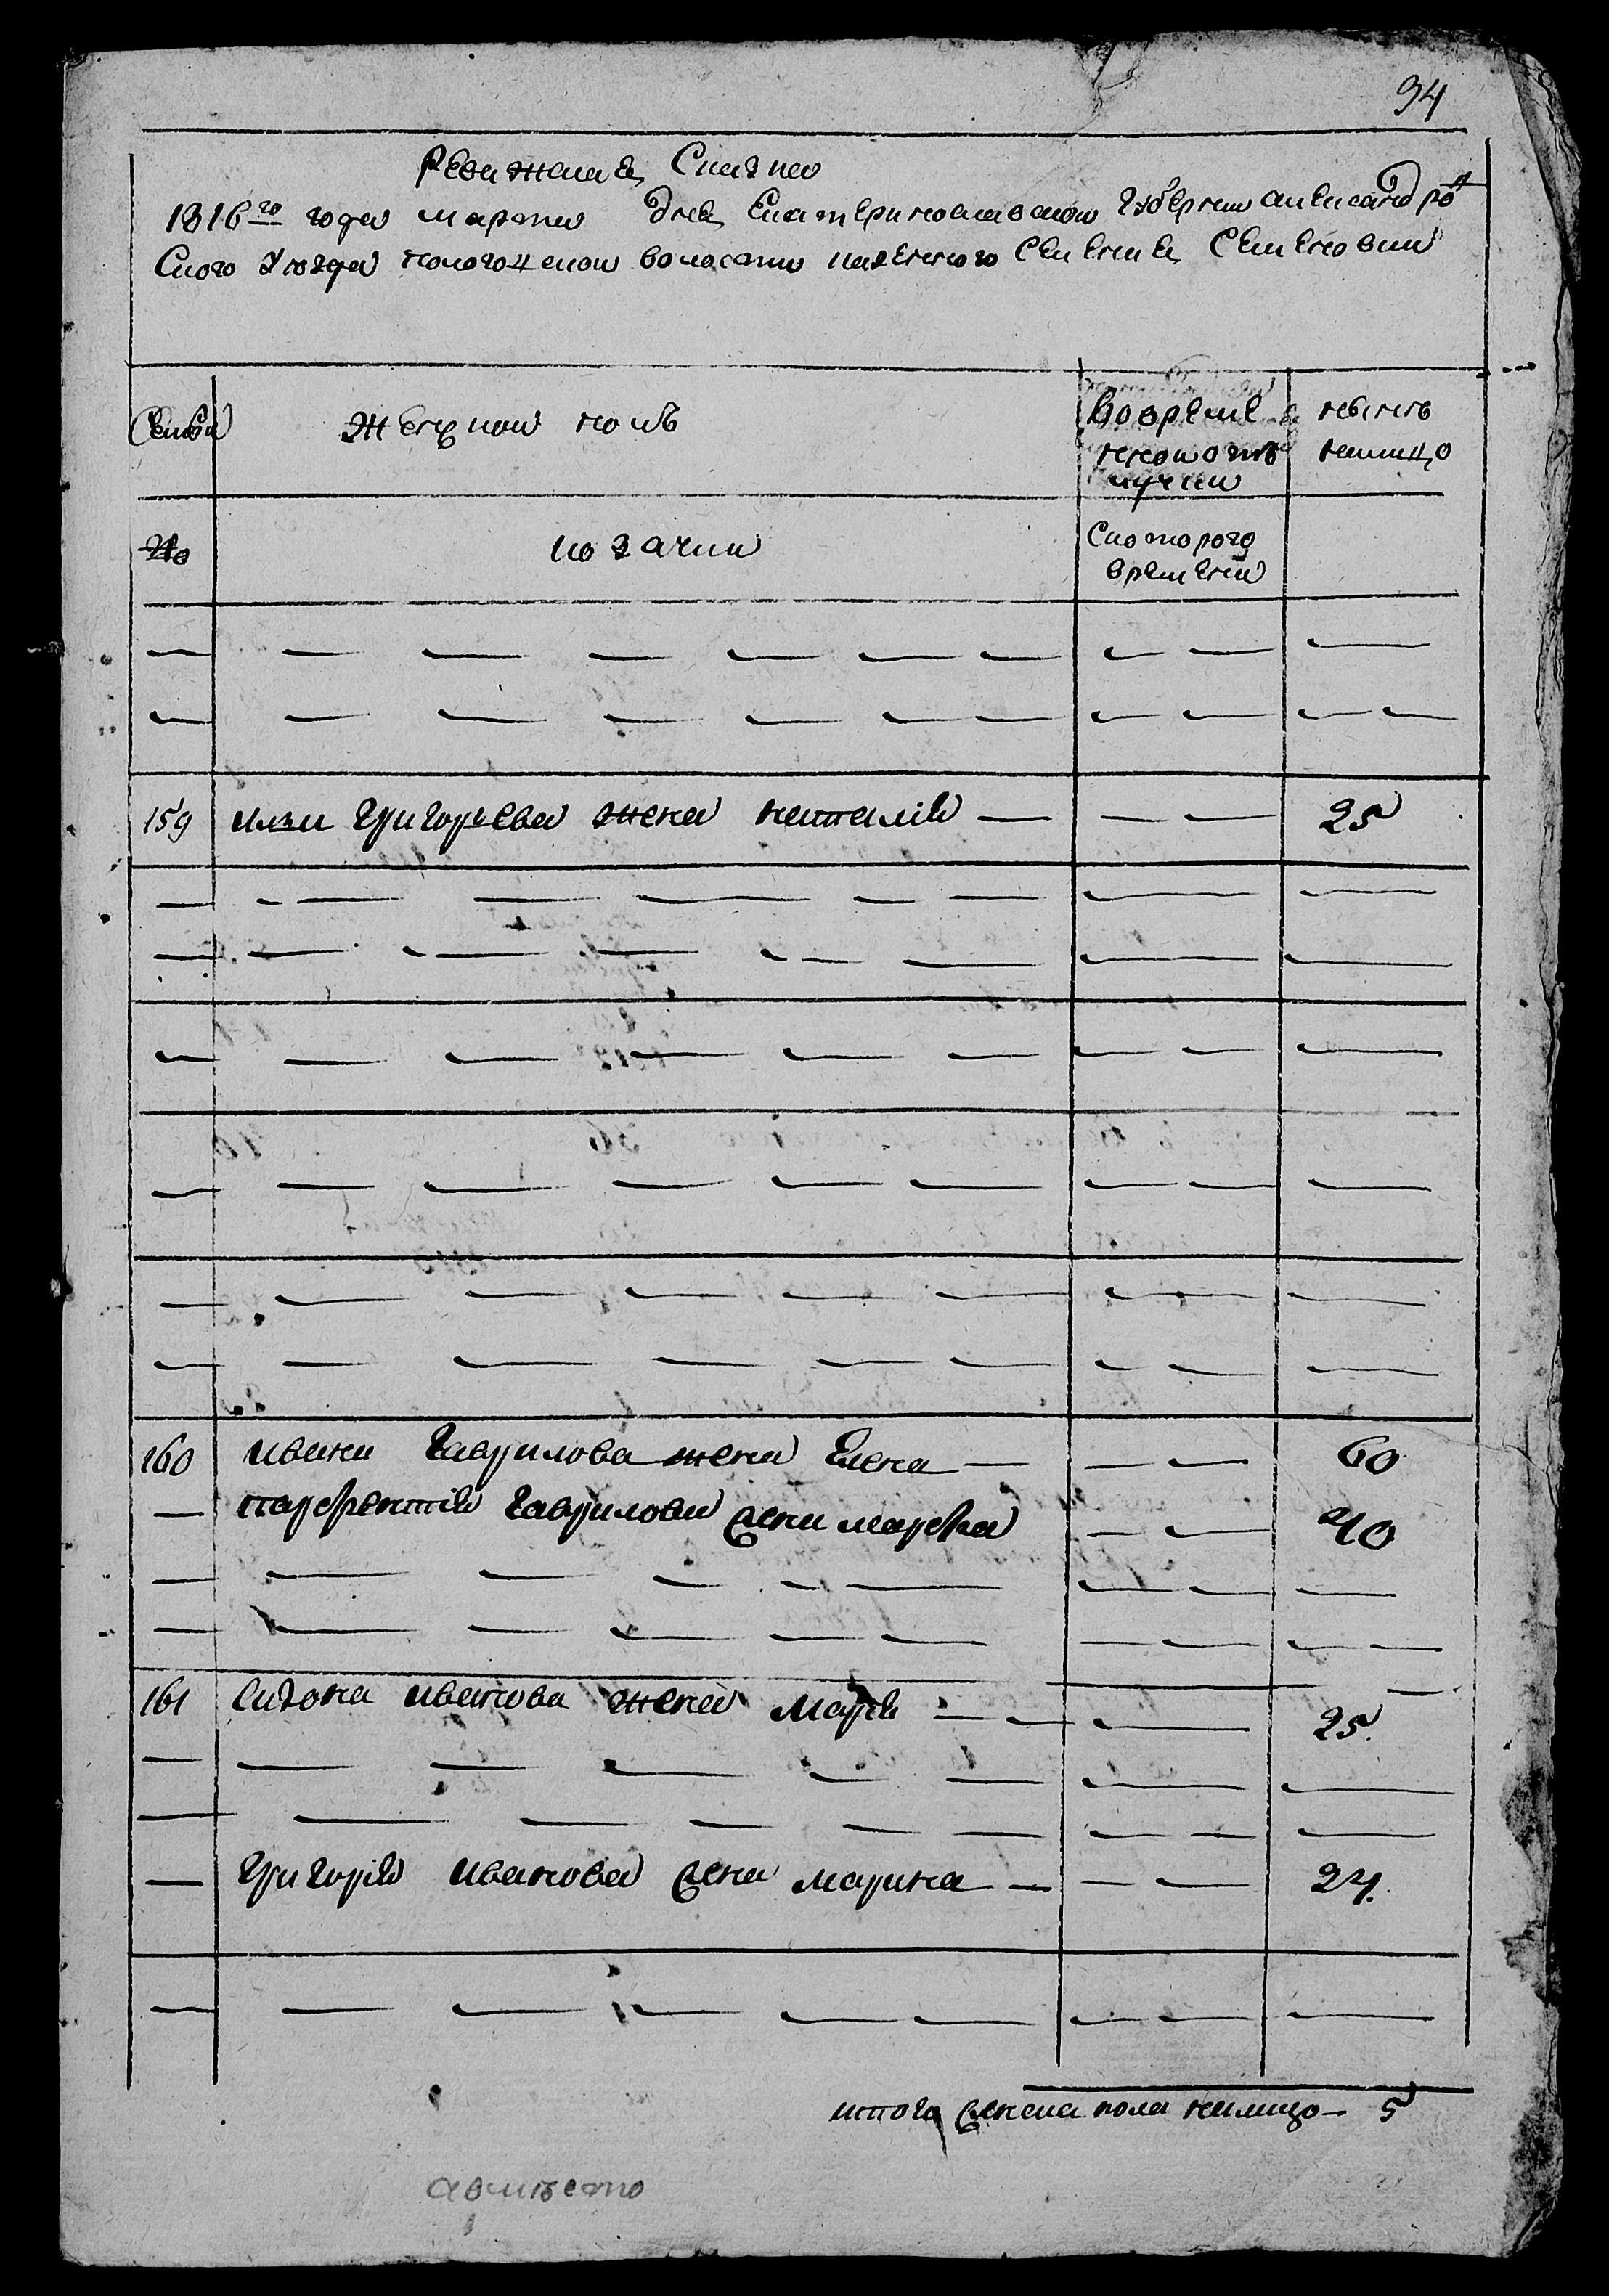 94
Ревижская Сказка
1816го года марта дня Екатеринославской губернии александров
Ского уезда пологоцкой воласти казенного Селения Семеновки
Семьи Женской полъ Во время нынъ
неотлучки налицо
No козачки Скоторого
времени
159 ильи григорьева жена наталія — — — 25
160 ивана гаврилова жена Елена — — — 60
— парфентія гаврилова жена марфа — — 40
161 Сидона иванова жена Марія — — — 25.
— григорія иванова жена марина — — — 24.
итого женска пола налицо — 5